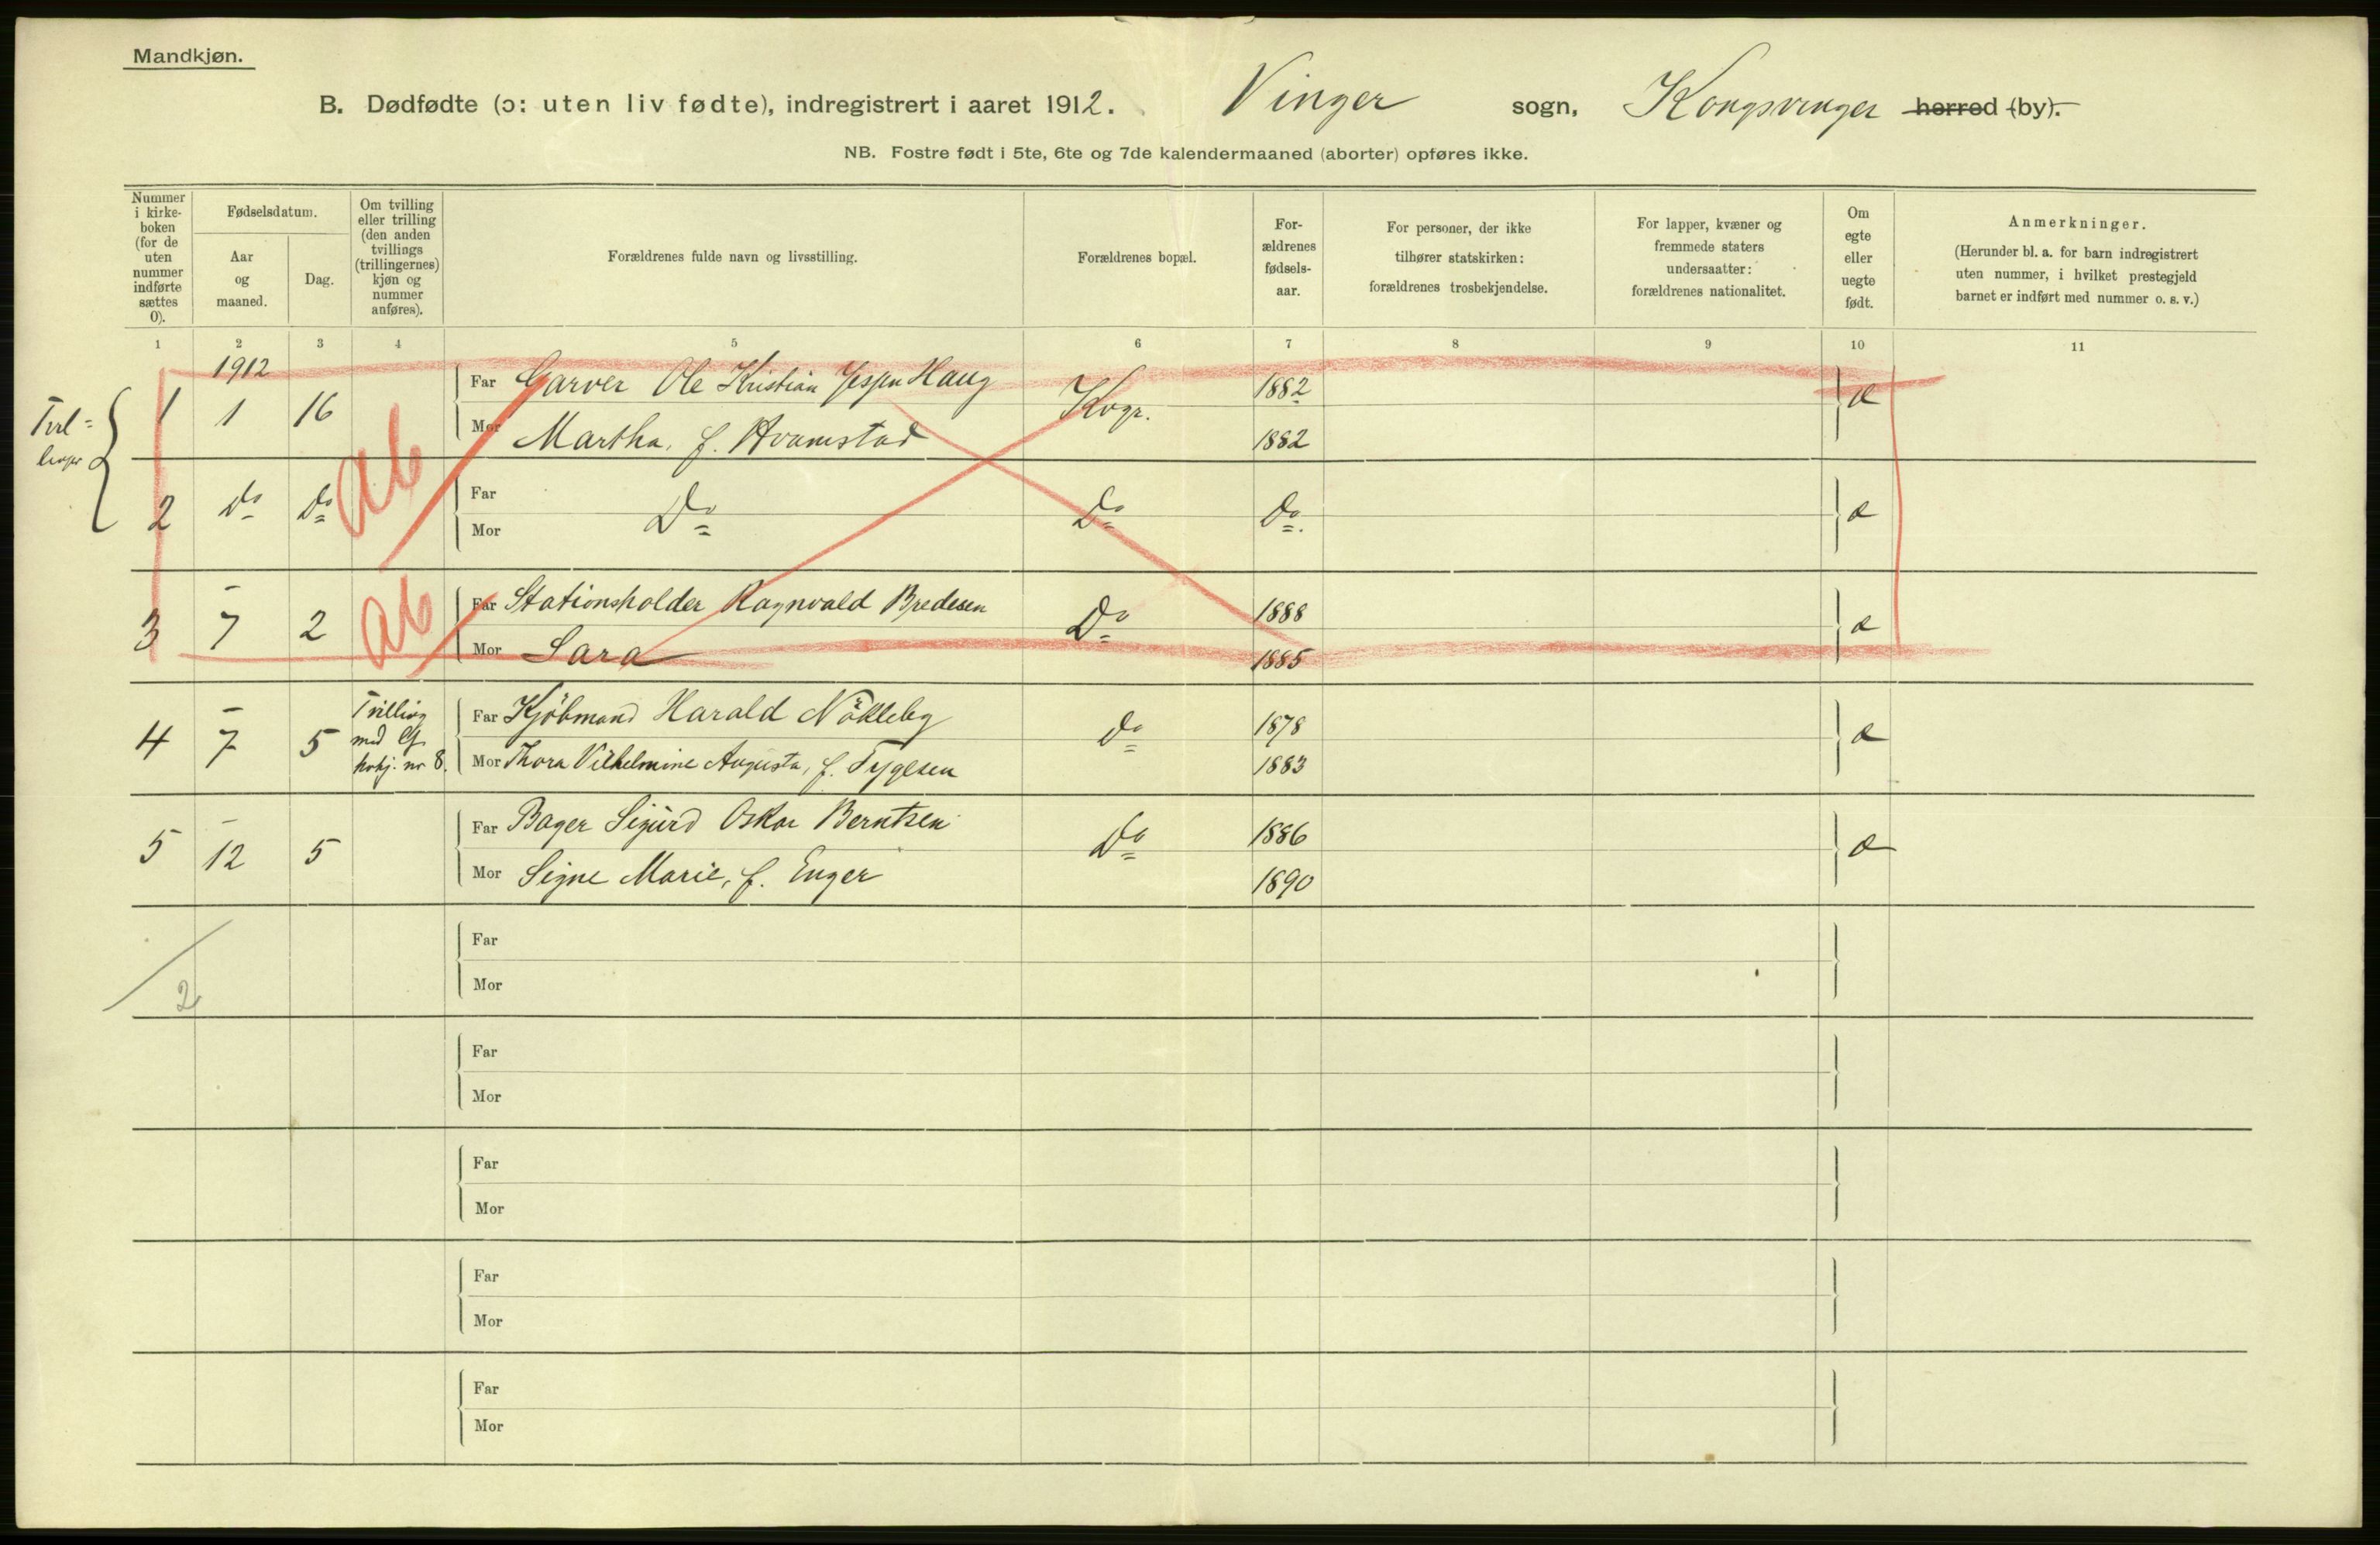 Mandkjøn.
B. Dødfødte (ɔ: uten liv fødte), indregistrert i aaret 1912. Vinger sogn, Kongsvinger herred (by).
NB. Fostre født i 5te, 6te og 7de kalendermaaned (aborter) opføres ikke.
Nummer i kirke-boken (for de uten nummer indførte sættes 0).
Fødselsdatum.
Aar og maaned.
Dag.
Om tvilling eller trilling (den anden tvillings (trillingernes) kjøn og nummer anføres).
Forældrenes fulde navn og livsstilling.
Forældrenes bopæl.
For-ældrenes fødsels-aar.
For personer, der ikke tilhører statskirken: forældrenes trosbekjendelse.
For lapper, kvæner og fremmede staters undersaatter: forældrenes nationalitet.
Om egte eller uegte født.
Anmerkninger.
(Herunder bl. a. for barn indregistrert uten nummer, i hvilket prestegjeld barnet er indført med nummer o. s. v.)
1 2 3 4 5 6 7 8 9 10 11
1912
1 1 16 Far Garver Ole Kristian Jespn Haug Kvgr. 1882 æ
Mor Martha, f. Hvamstad 1882
ab
2 Do Do Far Mor Do Do Do. æ
3 7 2 ab Far Stationsholder Ragnvald Bredesen Do 1888 æ
Mor Sara 1885
4 7 5 Tvilling med lf. kvkj. nr 8. Far Kjöbmand Harald Nökleby Do 1878 æ
Mor Thora Vilhelmine Augusta, f. Tygesen 1883
5 12 5 Far Bager Sigurd Oskar Berntsen Do 1886 æ
Mor Signe Marie, f. Enger 1890
2
Far
Mor
Far
Mor
Far
Mor
Far
Mor
Far
Mor